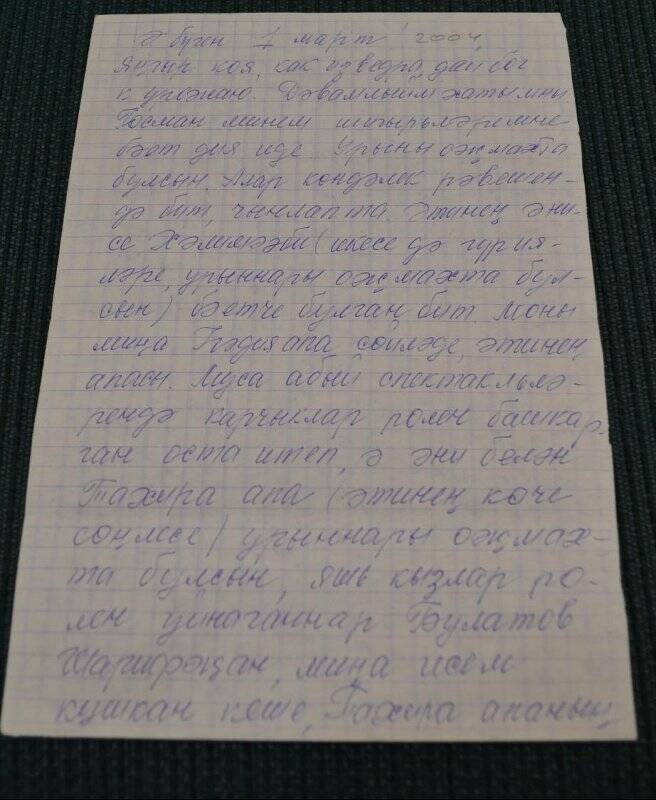 Ә бүген 1 март 2004,
Яңгыр коя, как из ведра, дай бог
к урожаю. Дәвамлыйм хатымны.
Госман минем шигырьләремне
бәет дия иде. Урыны оҗмахта
булсын. Алар көндәлек рәвешен-
дә бит, чынлапта. Әтинең әни-
се Хәлимәәби (икесе дә гүрия-
ләре, урыннары оҗмахта бул-
сын) бәетче булган бит. Моны
миңа апа сөйләде, әтинең
апасы. Муса абый спектакльлә-
рендә карчыклар ролен башкар-
ган оста итеп, ә әни белән
Тахира апа (әтинең кече
сеңлесе) урыннары оҗмах-
та булсын, яшь кызлар ро-
лен уйнаганнар Булатов
Шарифҗан, миңа исем
кушкан кеше, Тахира апаның